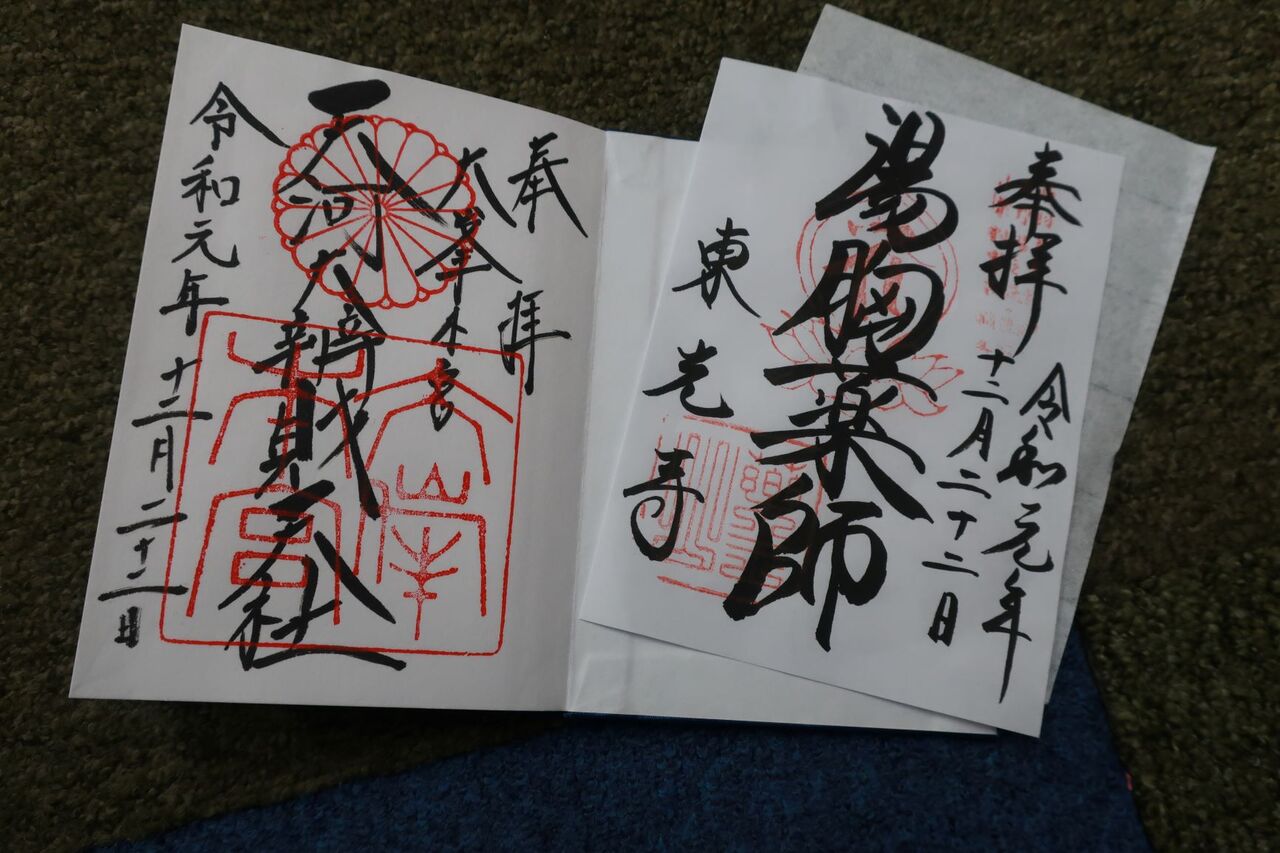 奉拝
令和元年
十二月二十二日
湯胸薬師
東光寺
奉拝
大峯本宮
天河大辨財天社
令和元年
十二月二十二日